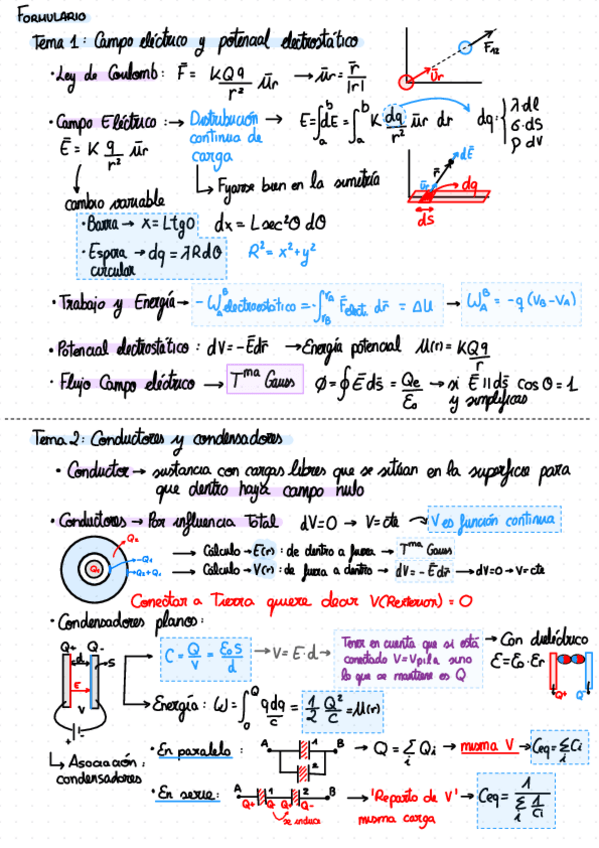 FORMULARIO
Tema 1: Campo eléctrico y potencial electrostático
· Ley de Coulomb: F̄ = KQq/r² ūr → ūr = r̄/|r|
F12
ūr
· Campo Eléctrico: → Distribución continua de carga → E = ∫ₐᵇ dE = ∫ₐᵇ K dq/r² ūr dr dq: { λ·dl
σ·dS
ρ dV
Ē = K q/r² ūr
↳ Fijarse bien en la simetría
dĒ
r̄
ūr
dq
dS
cambio variable
· Barra → x = Ltgθ dx = Lsec²θ dθ
· Espira circular → dq = λRdθ R² = x² + y²
· Trabajo y Energía → -W_A^B electrostático = -∫ F̄elect. dr̄ = ΔU → W_A^B = -q (VB - VA)
· Potencial electrostático: dV = -Ēdr̄ → Energía potencial U(r) = KQq/r
· Flujo Campo eléctrico → Tma Gauss ϕ = ∮ Ēds̄ = Qe/ε0 → si Ē || ds̄ cos θ = 1 y simplificas
Tema 2: Conductores y condensadores
· Conductor → sustancia con cargas libres que se sitúan en la superficie para
que dentro haya campo nulo
· Conductores → Por influencia Total dV=0 → V=cte → V es función continua
Q2
Q1
-Q1
Q2+Q1
→ Cálculo → E(r): de dentro a fuera → Tma Gauss
→ Cálculo → V(r): de fuera a dentro → dV = -Ēdr̄ → dV=0 → V=cte
Conectar a Tierra quiere decir V(Rexterior) = 0
· Condensadores planos:
Q+ Q-
d
S
E
V
C = Q/V = ε0S/d → V = E·d → Tener en cuenta que si está
conectado V=Vpila sino
lo que se mantiene es Q
→ Con dieléctrico
ε = ε0·εr
Q+ Q-
→ Energía: W = ∫₀^Q qdq/C = 1/2 Q²/C = U(r)
↳ Asociación condensadores:
· En paralelo: A 1 2 B → Q = Σi Qi → misma V → Ceq = Σi Ci
· En serie: A 1 2 B → 'Reparto de V' misma carga → Ceq = 1/Σi 1/Ci
Q+ Q- Q+ Q-
se induce